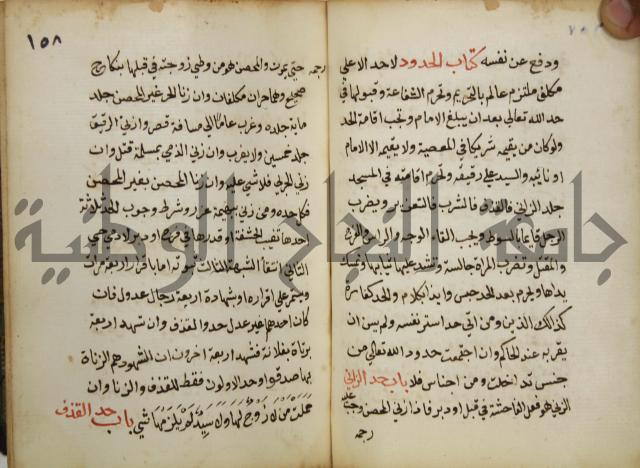 ودفع عن نفسه كتاب الحدود لاحد الاعلى
مكلف ملتزم عالم بالتحريم وتحرم الشفاعة وقبولها في
حد الله تعالى بعد ان يبلغ الامام وتجب اقامة الحد
ولو كان من يقيمه شريكا في المعصية ولا يقيمه الا الامام
او نايبه والسيد على رقيقه وتحرم اقامته في المسجد
جلد الزنا فالقذف فالشرب فالتعزير ويضرب
الرجل قايما بالسوط ويجب اتقاء الوجه والراس والفرج
والمقتل وتضرب المراة جالسة وتشد عليها ثيابها وتمسك
يداها ويحرم بعد الحد حبس وايذا بكلام والحد كفارة
كذلك الذنب ومن اتى حدا ستر نفسه ولم يسن ان
يقر به عند الحاكم وان اجتمعت حدود الله تعالى من
جنس تداخلت ومن اجناس فلا باب حد الزنا
الزنى هو فعل الفاحشة في قبل او دبر فاذا زنى المحصن وجب
رجمه
١٥٨
رجمه حتى يموت والمحصن هو من وطى زوجته في قبلها بنكاح
صحيح وهما حران مكلفان وان زنا الحر غير المحصن جلد
ماية جلده وغرب عاما الى مسافة قصر وان زنى الرقيق
جلد خمسين ولا يغرب وان زنى الذمي بمسلمة قتل وان
زنى الحربي فلا شي عليه وان زنا المحصن بغير المحصن
فكل حده ومن زنى ببهيمة عزر وشرط وجوب الحد ثلاثة
احدها تغيب الحشفة او قدرها في فرج او دبر لادمي حي
الثاني انتفا الشبهة الثالث ثبوته اما باقرار اربعة مرات
ويستمر على اقراره او شهادة اربعة رجال عدول فان
كان احدهم غير عدل حدوا للقذف وان شهد اربعة
بزناه بفلانة فشهد اربعة اخرون ان الشهود هم الزناة
بها صدقوا وحد الاولون فقط للقذف والزنا وان
حملت من لا زوج لها ولا سيد لم يلزمها شي باب حد القذف
جامعة النجاح الوطنية